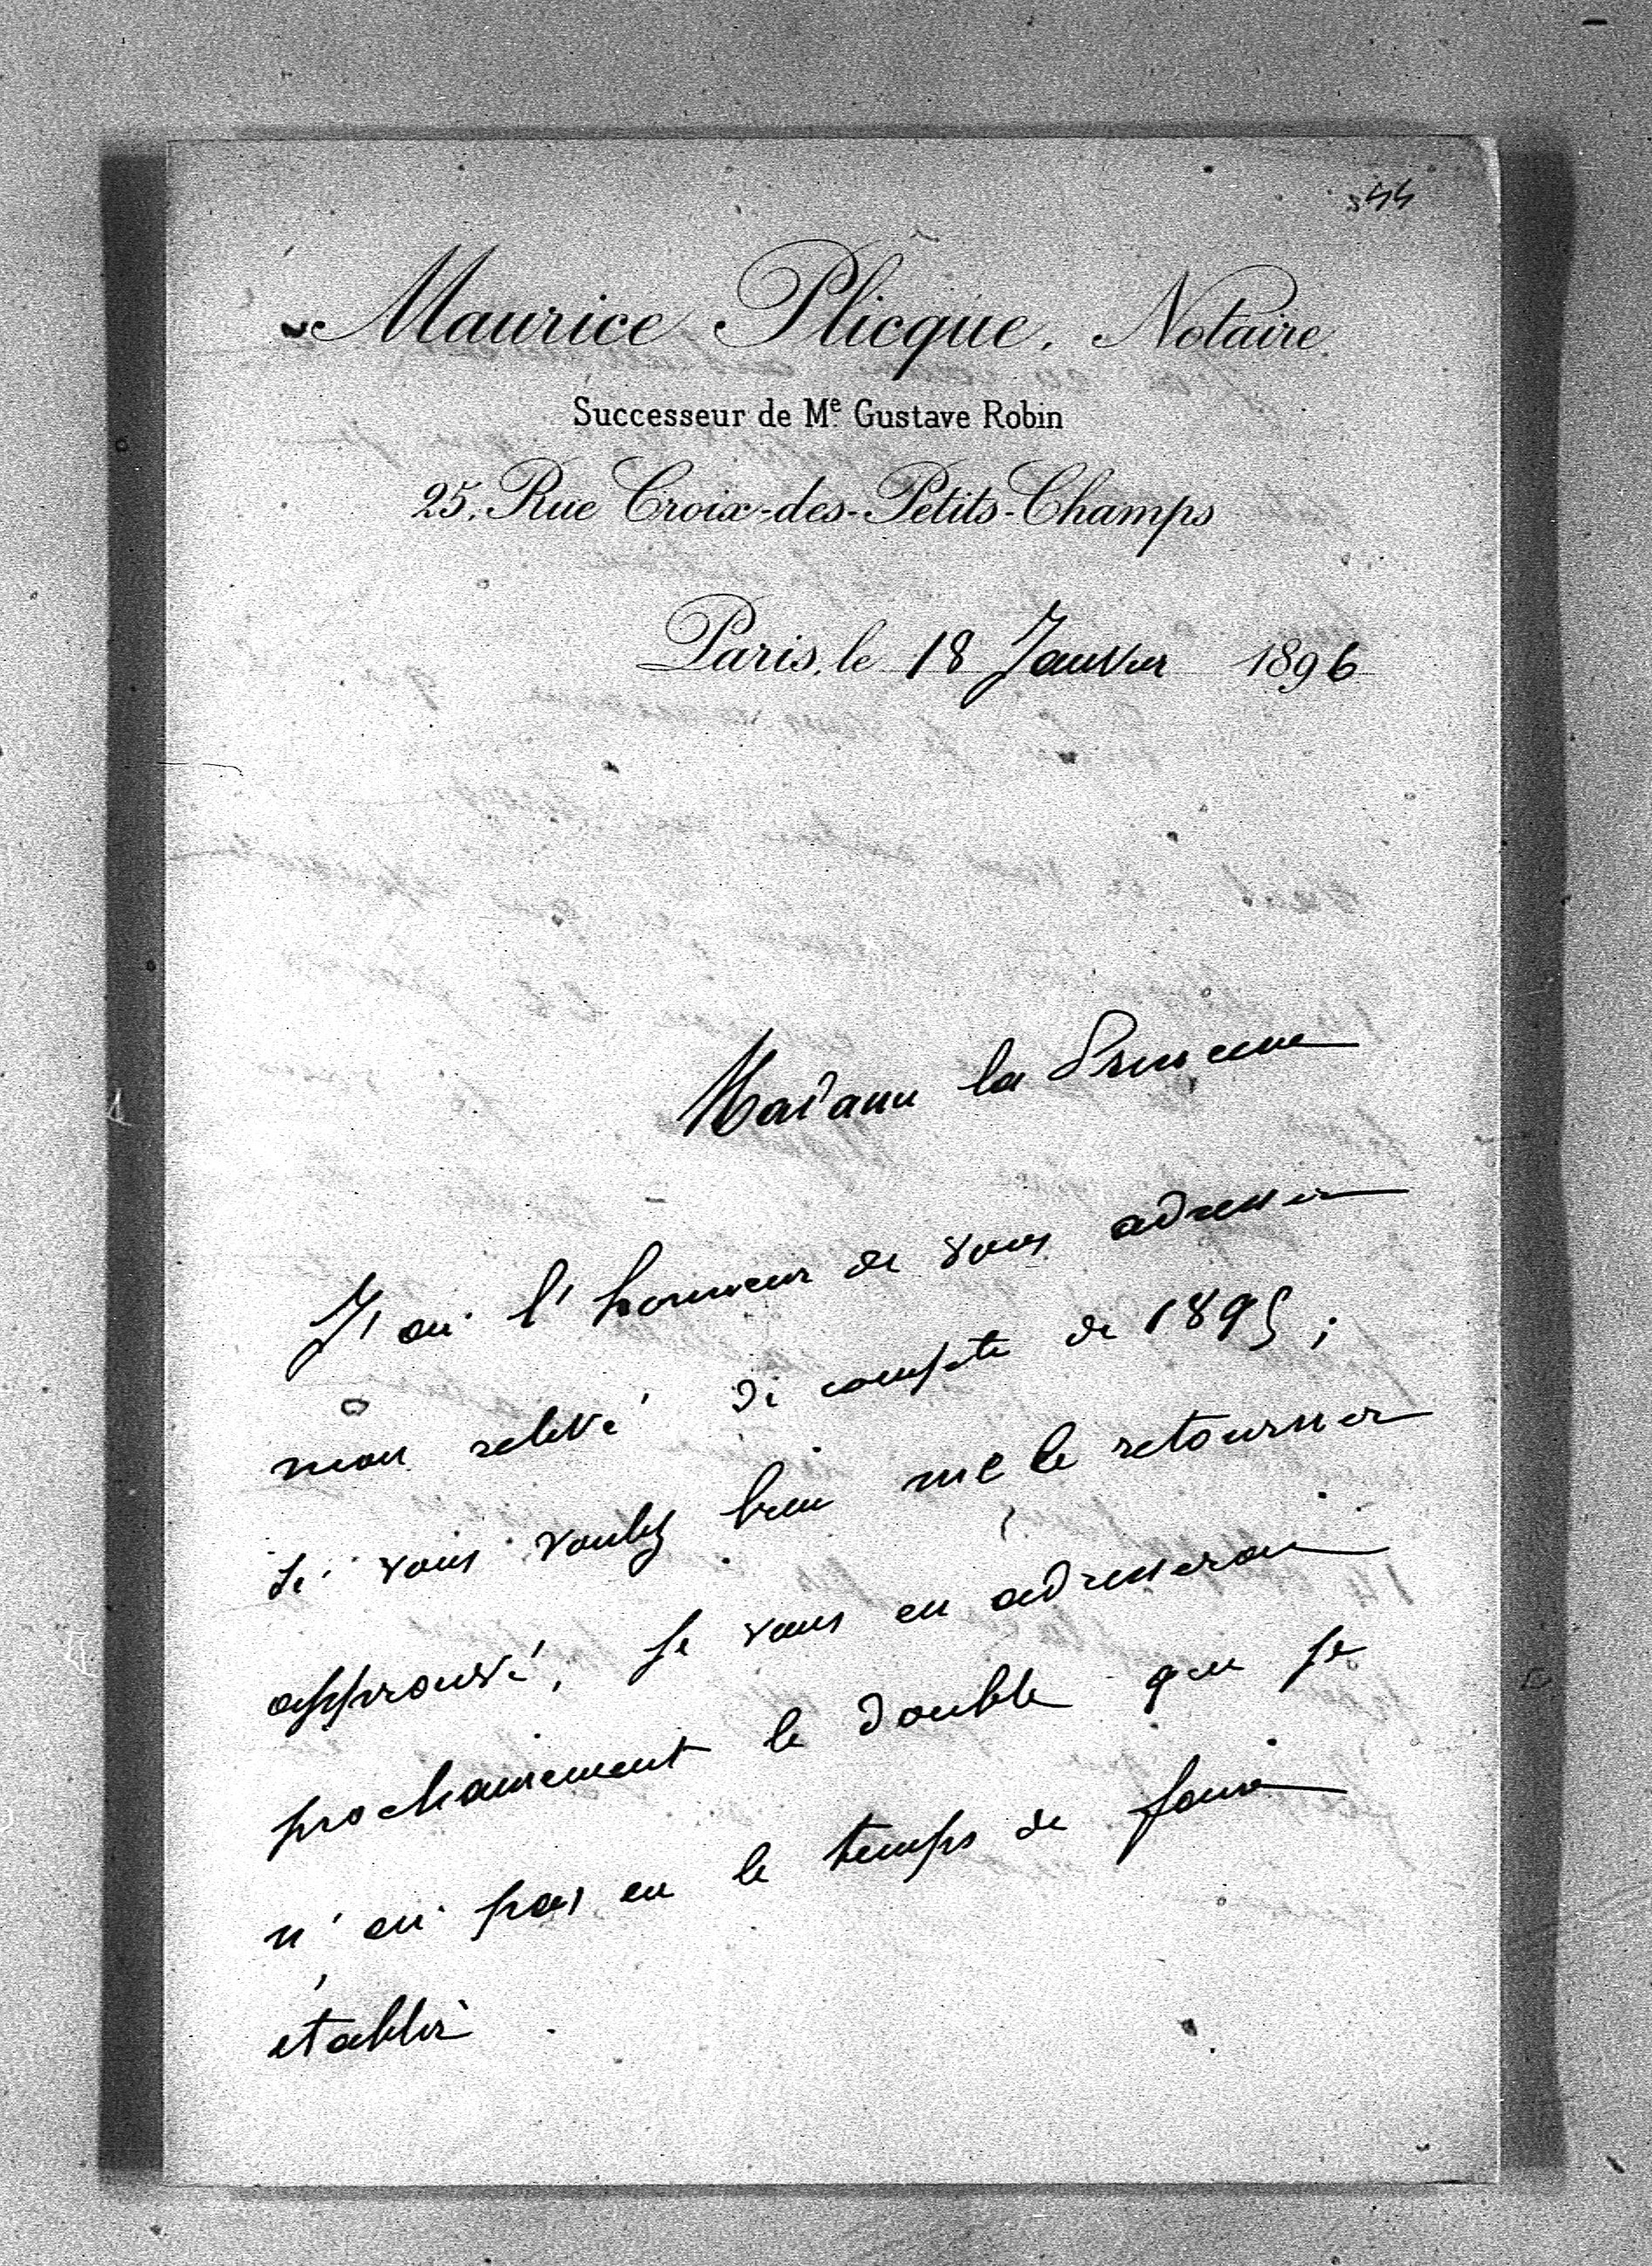 344
Maurice Plicque, Notaire
Successeur de Me Gustave Robin
25, Rue Croix-des-Petits-Champs
Paris, le 18 Janvier 1896
Madame la Princesse
J'ai l'honneur de vous adresser
mon relevé de compte de 1895 ;
si vous voulez bien me le retourner
approuvé, je vous en adresserai
prochainement le double que je
n'ai pas eu le temps de faire
établir